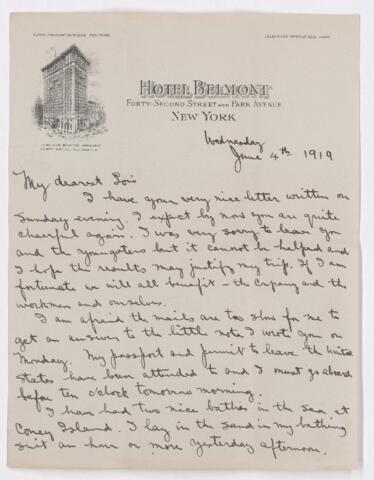 HOTEL BELMONT
FORTY-SECOND STREET AND PARK AVENUE
NEW YORK
Wednesday
June 4th 1919
My dearest Lois
I have your very nice letter written on
Sunday evening. I expect by now you are quite
cheerful again. I was very sorry to leave you
and the youngsters but it cannot be helped and
I hope the results may justify my trip. If I am
fortunate we will all benefit - the Company and the
workmen and ourselves.
I am afraid the mails are too slow for me to
get an answer to the little note I wrote you on
Monday. My passport and permit to leave the United
States have been attended to and I must go aboard
before ten o'clock tomorrow morning.
I have had two nice bathes in the sea at
Coney Island. I lay in the sand in my bathing
suit an hour or more yesterday afternoon.